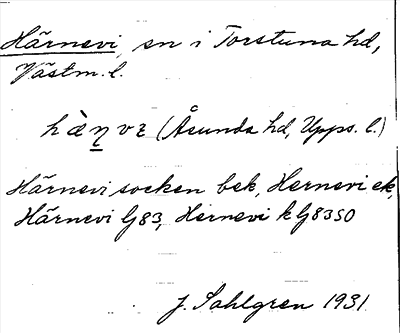 Härnevi, sn i Torstuna hd,
Västm. l.
hæ̀ꞃvɛ (Åsunda hd, Upps. l.)
Härnevi socken bek, Hernevi ek,
Härnevi Gj 83, Hernevi k Gj 83 SO
J. Sahlgren 1931